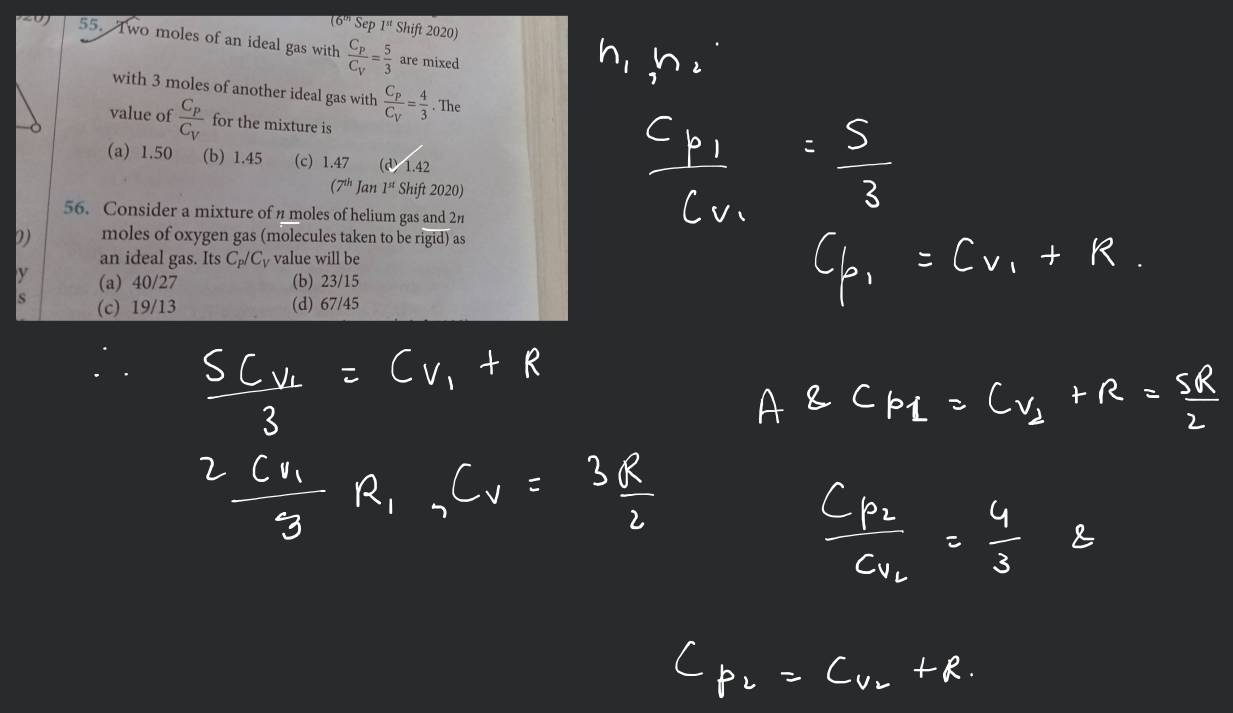 (6th Sep 1st Shift 2020)
55. Two moles of an ideal gas with C_P/C_V = 5/3 are mixed
with 3 moles of another ideal gas with C_P/C_V = 4/3. The
value of C_P/C_V for the mixture is
(a) 1.50 (b) 1.45 (c) 1.47 (d) 1.42
(7th Jan 1st Shift 2020)
56. Consider a mixture of n moles of helium gas and 2n
moles of oxygen gas (molecules taken to be rigid) as
an ideal gas. Its C_P/C_V value will be
(a) 40/27 (b) 23/15
(c) 19/13 (d) 67/45
y
s
n₁, n₂
Cp₁/Cv₁ = 5/3
Cp₁ = Cv₁ + R.
∴ 5Cv₁/3 = Cv₁ + R
2Cv₁/3 R₁, Cv = 3R/2
A & Cp1 = Cv₂ + R = 5R/2
Cp₂/Cv₂ = 4/3 &
Cp₂ = Cv₂ + R.